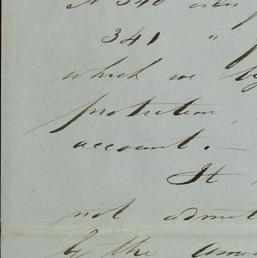 N 340
341 "
which we
protection
account. —
It
not admit
by the